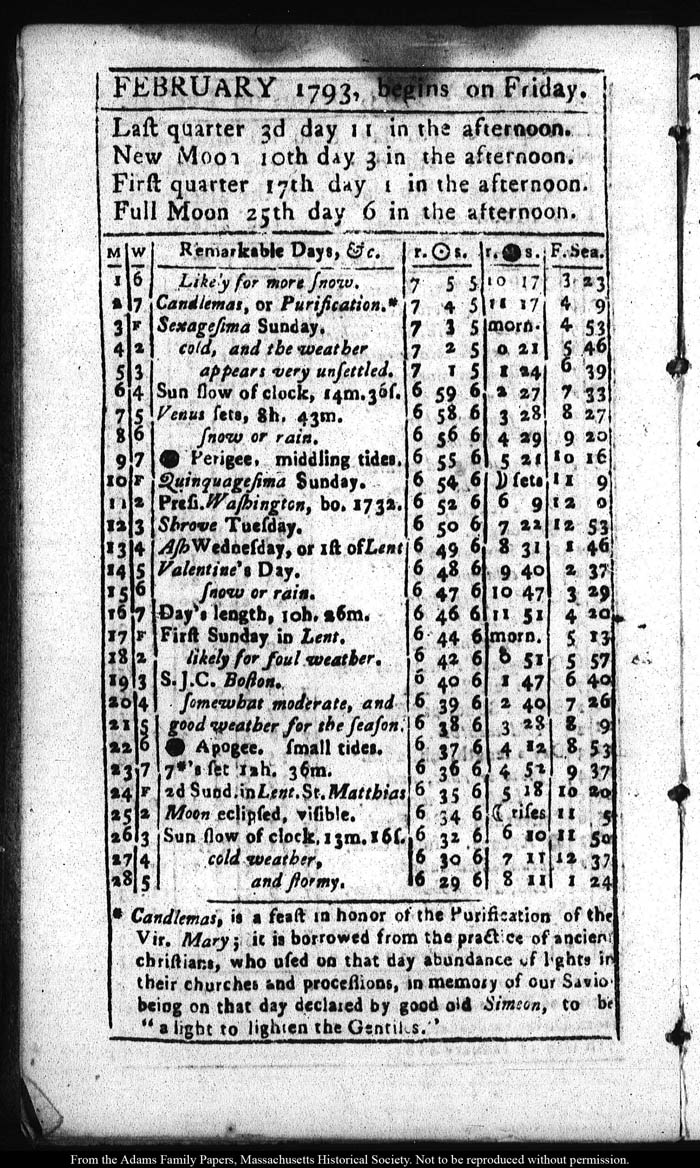 FEBRUARY 1793, begins on Friday.
Laſt quarter 3d day 11 in the afternoon.
New Moon 10th day 3 in the afternoon.
Firſt quarter 17th day 1 in the afternoon.
Full Moon 25th day 6 in the afternoon.
M W Remarkable Days, &c. r. ☉ s. r. ● s. F. Sea.
1 6 Likely for more ſnow. 7 5 5 10 17 3 23
2 7 Candlemas, or Purification.* 7 4 5 11 17 4 9
3 F Sexageſima Sunday. 7 3 5 morn. 4 53
4 2 cold, and the weather 7 2 5 0 21 5 46
5 3 appears very unſettled. 7 1 5 1 24 6 39
6 4 Sun ſlow of clock, 14m. 36ſ. 6 59 6 2 27 7 33
7 5 Venus ſets, 8h. 43m. 6 58 6 3 28 8 27
8 6 ſnow or rain. 6 56 6 4 29 9 20
9 7 ● Perigee, middling tides. 6 55 6 5 21 10 16
10 F Quinquageſima Sunday. 6 54 6 ☽ ſets 11 9
11 2 Preſi. Waſhington, bo. 1732. 6 52 6 6 9 12 0
12 3 Shrove Tueſday. 6 50 6 7 22 12 53
13 4 Aſh Wedneſday, or 1ſt of Lent 6 49 6 8 31 1 46
14 5 Valentine's Day. 6 48 6 9 40 2 37
15 6 ſnow or rain. 6 47 6 10 47 3 29
16 7 Day's length, 10h. 26m. 6 46 6 11 51 4 20
17 F Firſt Sunday in Lent. 6 44 6 morn. 5 13
18 2 likely for foul weather. 6 42 6 0 51 5 57
19 3 S.J.C. Boſton. 6 40 6 1 47 6 40
20 4 ſomewhat moderate, and 6 39 6 2 40 7 26
21 5 good weather for the ſeaſon. 6 38 6 3 28 8 9
22 6 ● Apogee. ſmall tides. 6 37 6 4 12 8 53
23 7 7*'s ſet 12h. 36m. 6 36 6 4 52 9 37
24 F 2d Sund. in Lent. St. Matthias 6 35 6 5 18 10 20
25 2 Moon eclipſed, viſible. 6 34 6 ☾ riſes 11 5
26 3 Sun ſlow of clock, 13m. 16ſ. 6 32 6 6 10 11 50
27 4 cold weather, 6 30 6 7 11 12 37
28 5 and ſtormy. 6 29 6 8 11 1 24
* Candlemas, is a feaſt in honor of the Purification of the
Vir. Mary; it is borrowed from the practice of ancient
chriſtians, who uſed on that day abundance of lights in
their churches and proceſſions, in memory of our Savio
being on that day declared by good old Simeon, to be
"a light to lighten the Gentiles."
From the Adams Family Papers, Massachusetts Historical Society. Not to be reproduced without permission.